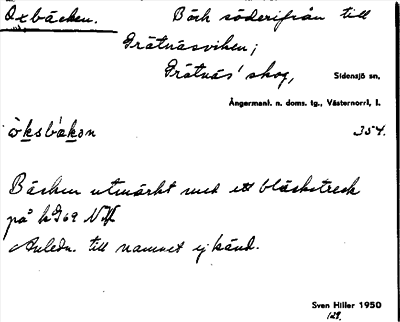 Oxbäcken. Bäck söderifrån till
Grätnäsviken;
Grätnäs' skog, Sidensjö sn,
Ångermanl. n. doms. tg., Västernorrl. l.
òksbàkən 354.
Bäcken utmärkt med ett bläckstreck
på k 969 NV
Anledn. till namnet ej känd.
Sven Hiller 1950
129.